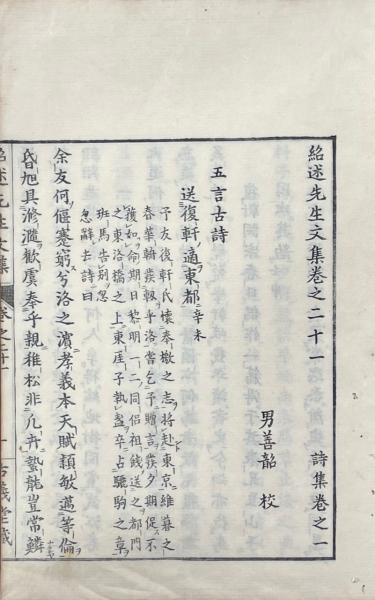 紹述先生文集卷之二十一　詩集卷之一
男善韶 校
五言古詩
送復軒適東都 辛未
予友復軒氏懷奉檄之志將赴東京維暮之
春華輈發軔乎洛當乞予贈言發夕期促不
獲如命期日黎明一二同侶祖餞送之都門
之東洛橋之上東厓子執盞卒占驪駒之章
班馬告別忽
怱辭去詩曰
余友何偃蹇窮兮洛之濱孝義本天賦穎敏邁等倫
昏旭具滫瀡歡虞奉乎親稚松非凡卉蟄龍豈常鱗
紹述先生文集
卷之廿一
一
古義堂藏